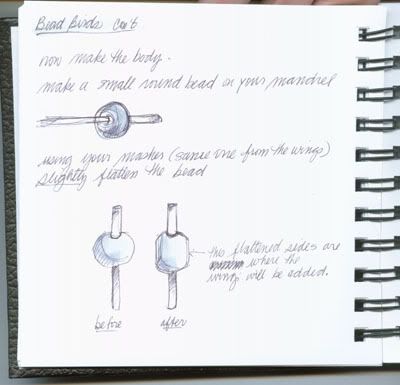 Bead Birds Con't
now make the body.
make a small round bead on your mandrel
using your masher (same one from the wings)
slightly flatten the bead
this flattened sides are
where the
wings will be added.
before
after